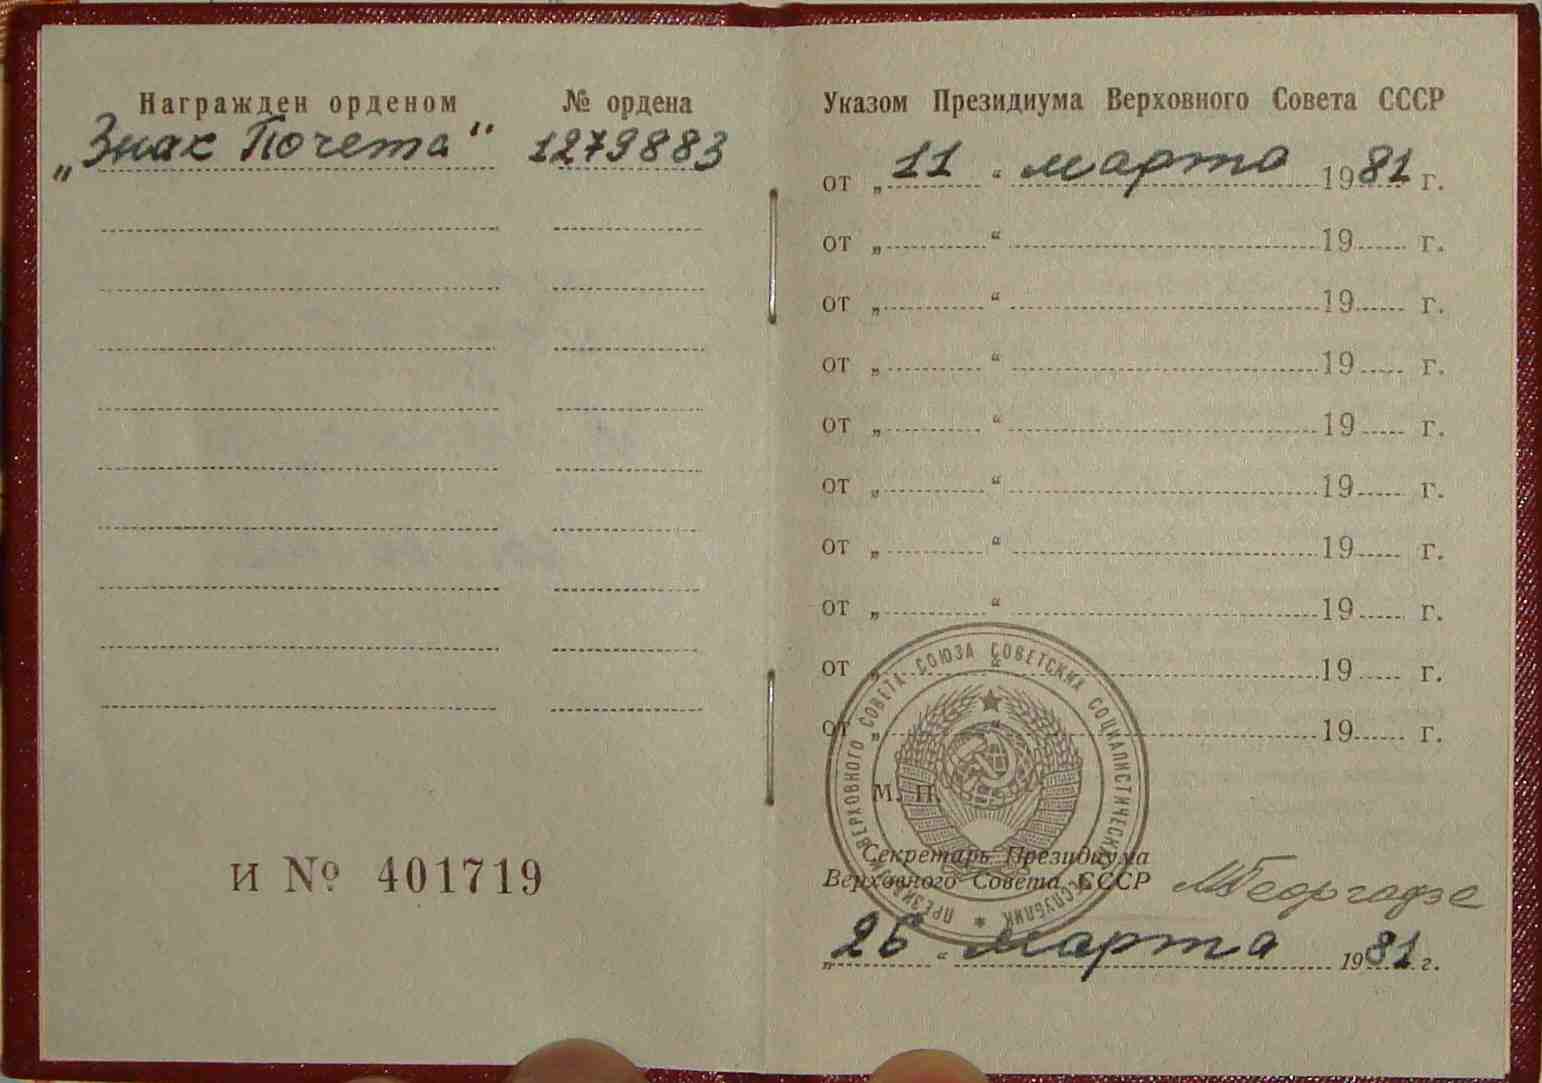 Награжден орденом № ордена
„Знак Почета“ 1279883
И № 401719
Указом Президиума Верховного Совета СССР
от „11“ марта 1981 г.
от „ “ 19 г.
от „ “ 19 г.
от „ “ 19 г.
от „ “ 19 г.
от „ “ 19 г.
от „ “ 19 г.
от „ “ 19 г.
от „ “ 19 г.
от „ “ 19 г.
ПРЕЗИДИУМ ВЕРХОВНОГО СОВЕТА СОЮЗА СОВЕТСКИХ СОЦИАЛИСТИЧЕСКИХ РЕСПУБЛИК
М. П.
Секретарь Президиума
Верховного Совета СССР МГеоргадзе
„26“ марта 1981 г.